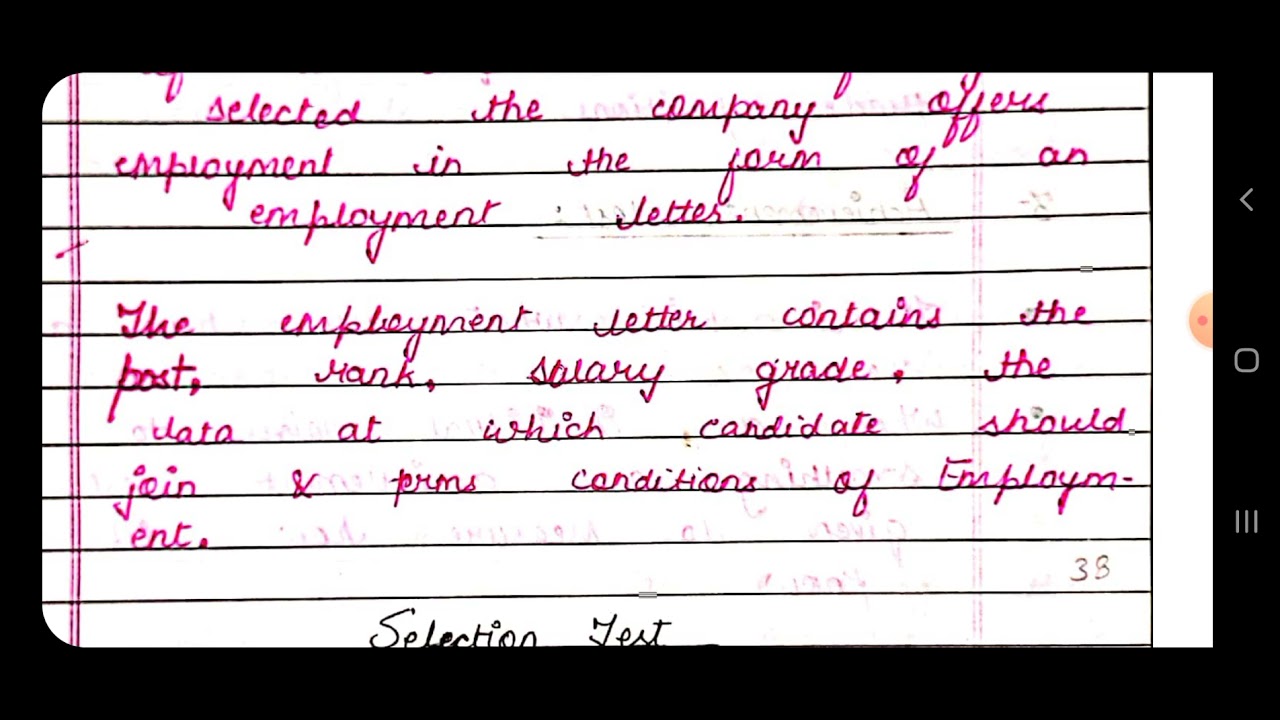 selected the company offers
employment in the form of an
employment letter.
The employment letter contains the
post, rank, salary grade, the
data at which candidate should
join & prms conditions of Employm-
ent.
38
Selection Test